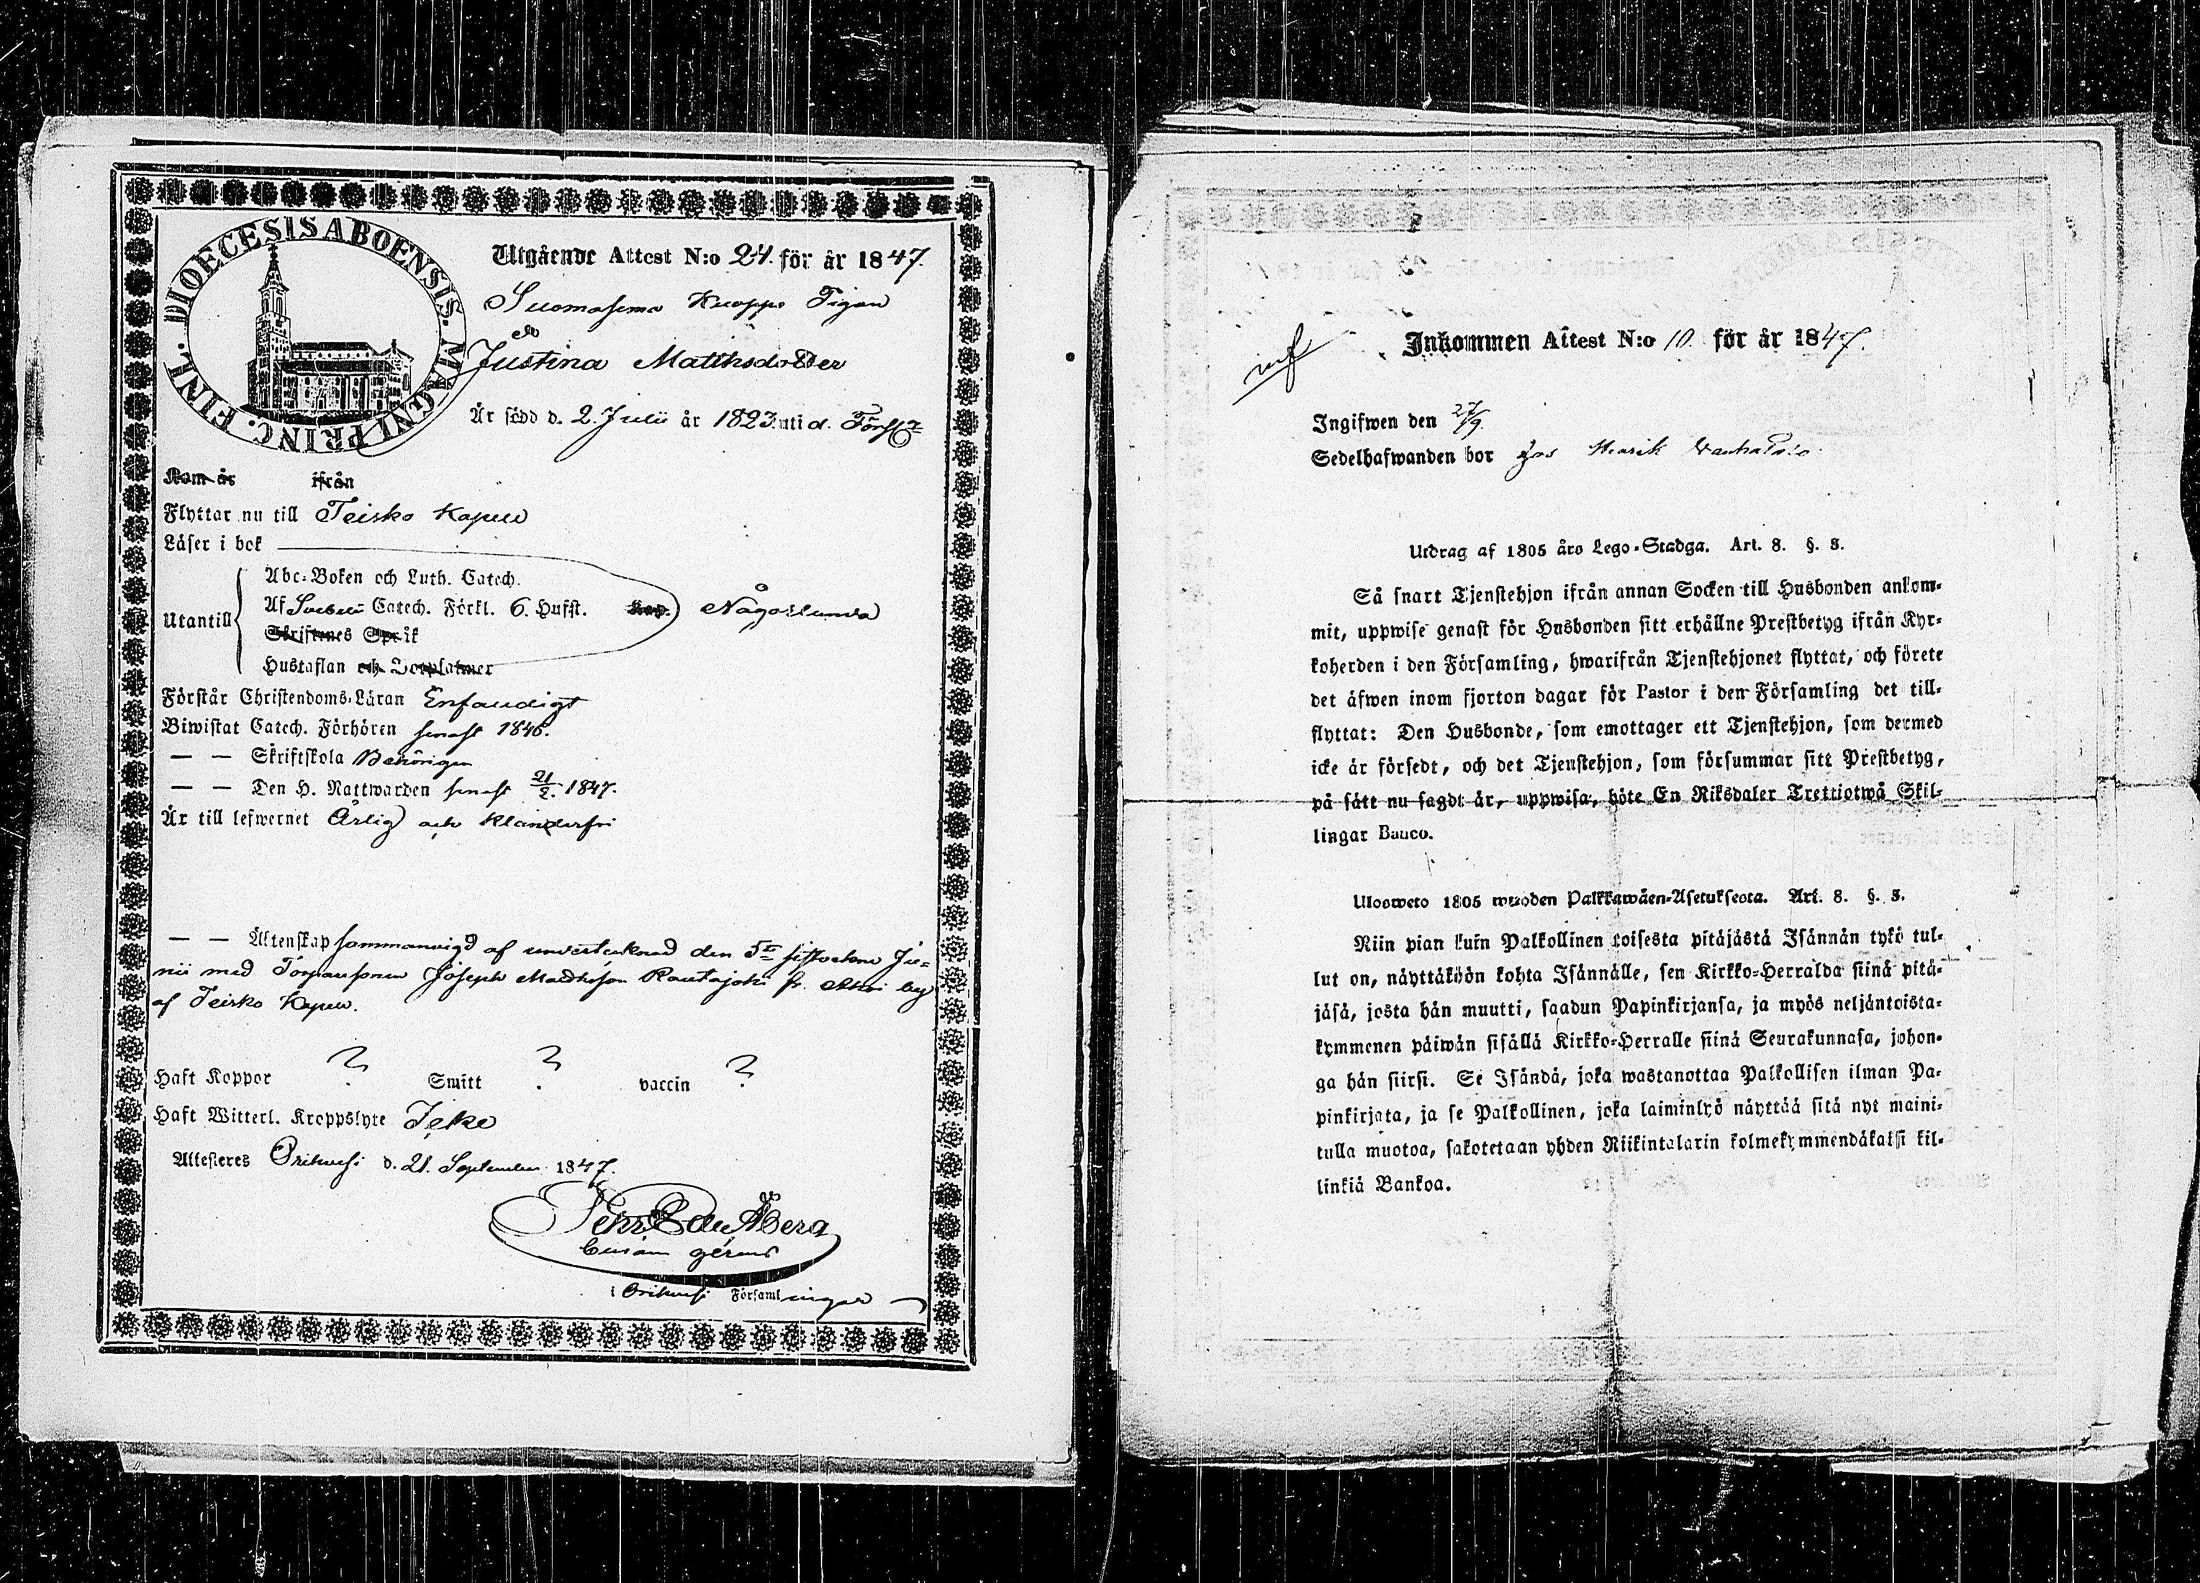 DIOECESIS ABOENSIS. MAGNI PRINC. FINL.
Utgående Attest N:o 24. för år 1847.
Suomasema Knoppo Pigan
Justina Matthsdotter
Är född d. 2. Julii år 1823 uti d. Förs:
Kom år ifrån
Flyttar nu till Teisko Kapell
Läser i bok
Utantill
Abc-Boken och Luth. Catech.
Af Svebelii Catech. Förkl. 6. Hufst. Kap. Någorlunda
Skriftenes Språk
Hustaflan och Lorplatmer
Förstår Christendoms-Läran Enfaldigt
Biwistat Catech. Förhören senast 1846.
— — Skriftskola Behörigen
— — Den H. Nattwarden senast 21/2. 1847.
Är till lefwernet Ärlig och klanderfri
— — Äktenskap sammanvigd af undertecknad den 5te sistvekne Ju-
nii med Torparsonen Joseph Matthsson Rautajoki fr. by
af Teisko Kapell.
Haft Koppor ? Smitt ? vaccin ?
Haft Witterl. Kroppslyte Icke
Attesteres Orihvesi d. 21. September 1847.
Pehr Edu. Åberg
Curam gerens
i Orihvesi Församlingar
Inkommen Attest N:o 10 för år 1847.
inf
Ingifwen den 27/9.
Sedelhafwanden bor hos Henrik Vanhatalo
Utdrag af 1805 års Lego-Stadga. Art. 8. §. 3.
Så snart Tjenstehjon ifrån annan Socken till Husbonden ankom-
mit, uppwise genast för Husbonden sitt erhållne Prestbetyg ifrån Kyr-
koherden i den Församling, hwarifrån Tjenstehjonet flyttat, och förete
det äfwen inom fjorton dagar för Pastor i den Församling det till-
flyttat: Den Husbonde, som emottager ett Tjenstehjon, som dermed
icke är försedt, och det Tjenstehjon, som försummar sitt Prestbetyg,
på sätt nu sagdt är, uppwisa, böte En Riksdaler Trettiotwå Skil-
lingar Banco.
Ulosweto 1805 wuoden Palkkawäen-Asetuksesta. Art. 8. §. 3.
Niin pian kuin Palkollinen toisesta pitäjästä Isännän tykö tul-
lut on, näyttäköön kohta Isännälle, sen Kirkko-Herralda siinä pitä-
jäsä, josta hän muutti, saadun Papinkirjansa, ja myös neljäntoista-
kymmenen päiwän sisällä Kirkko-Herralle siinä Seurakunnasa, johon-
ga hän siirsi. Se Isändä, joka wastanottaa Palkollisen ilman Pa-
pinkirjata, ja se Palkollinen, joka laiminlyö näyttää sitä nyt maini-
tulla muotoa, sakotetaan yhden Riikintalarin kolmekymmendäkaksi kil-
linkiä Bankoa.